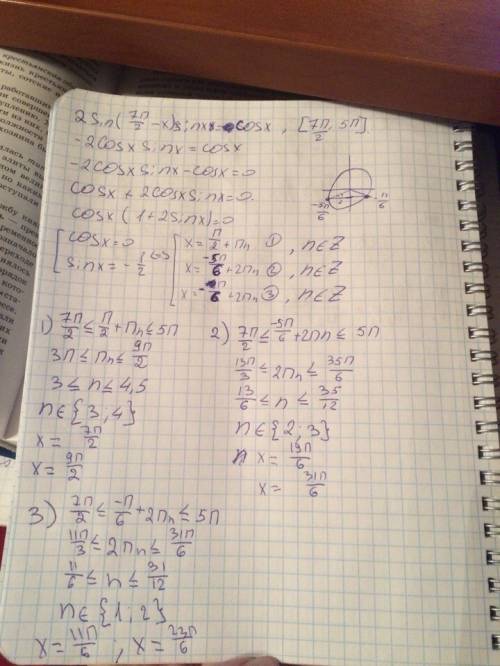 2Sin(7π/2 -x)sinx=cosx , [7π/2, 5π]
-2cosx sinx=cosx
-2cosx sinx-cosx=0
cosx+2cosx sinx=0.
cosx(1+2sinx)=0
-5π/6 -π/6
[cosx=0 [x=π/2+πn ① , n∈Z
[sinx=-1/2 ⇔ [x=-5π/6+2πn ② , n∈Z
[x=-π/6+2πn ③ , n∈Z
1) 7π/2≤π/2+πn≤5π
3π≤πn≤9π/2
3≤n≤4,5
n∈{3;4}
x=7π/2
x=9π/2
2) 7π/2≤-5π/6+2πn≤5π
13π/3≤2πn≤35π/6
13/6≤n≤35/12
n∈{2;3}
x=19π/6
x=31π/6
3) 7π/2≤-π/6+2πn≤5π
11π/3≤2πn≤31π/6
11/6≤n≤31/12
n∈{1;2}
x=11π/6 ; x=23π/6